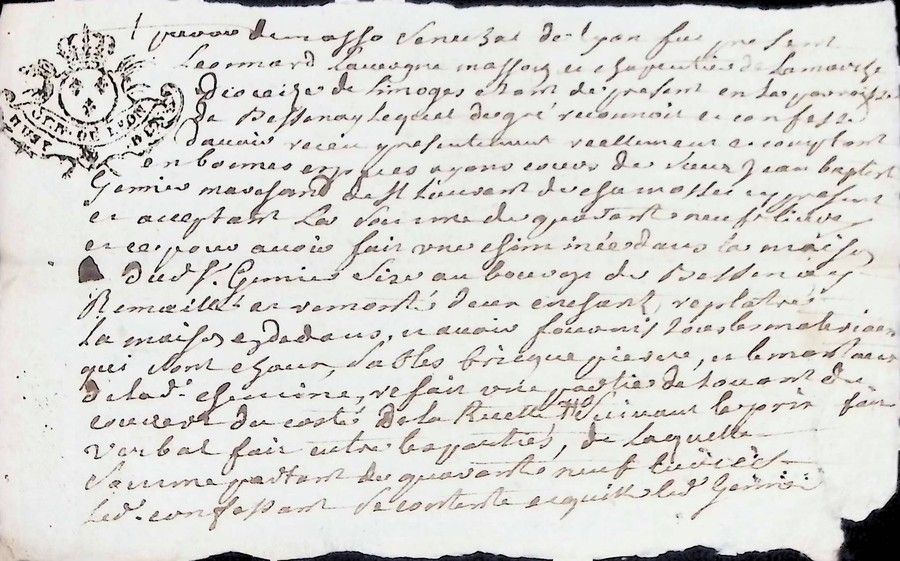 fut present
Leonnard Lauvergne masson et charpentier de Lamarche
Diocaize de Limoges estant de present en la parroisse
de Bessenay lequel de gré reconnoit et confesse
davoir receu presentement reellement et comptant
en bonnes especes ayans cours de sieur Jean baptiste
Gemier marchand de St Laurant de chamosset cy present
et acceptant la somme de quarante neuf livres
et ce pour avoir fait une cheminée dans la maison
dud. Sr. Gemier size au bourg de Bessenay
Remaillé et remonté deux replatré
la maison en dedans, et avoir fourny tous les materiaux
qui sont chaux, sables bricque pierre, et le manteau
de lad. cheminé, refait une partie de
couvert du costé de la Ruelle suivant le prix fait
verbal fait entre les parties, de laquelle
somme partant de quarante neuf livres
led. confessant se contente et quitte led. Gemier